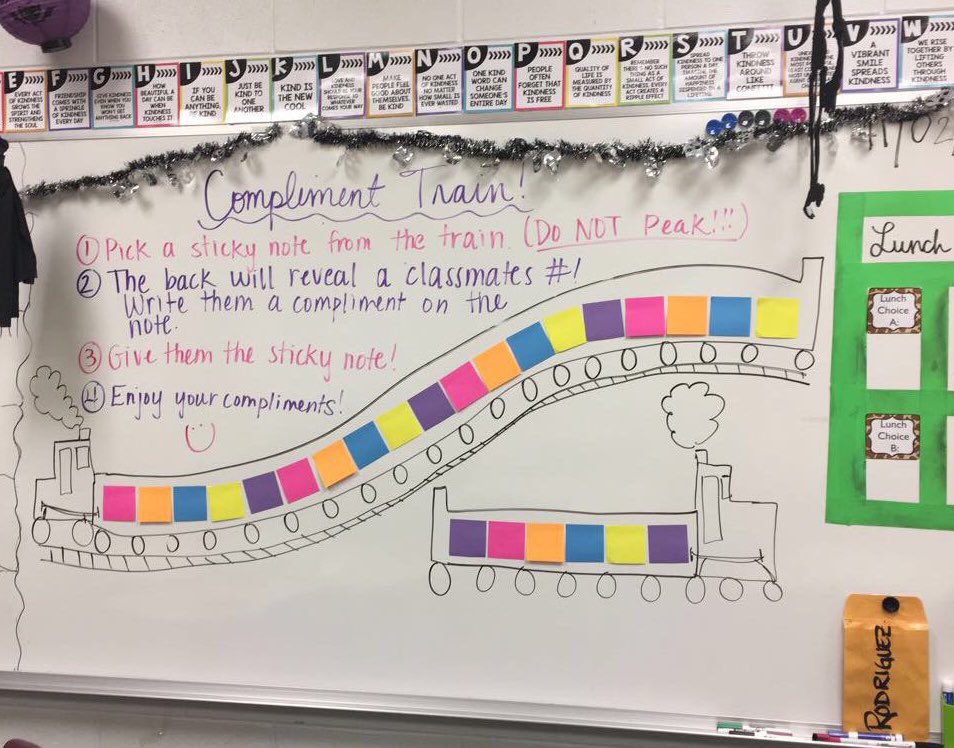 E F G H I J K L M N O P Q R S T U V W
EVERY ACT OF KINDNESS GROWS THE SPIRIT AND STRENGTHENS THE SOUL
FRIENDSHIP COMES WITH A SPRINKLE OF KINDNESS EVERY DAY
GIVE KINDNESS EVEN WHEN YOU KNOW YOU WON'T GET ANYTHING BACK
HOW BEAUTIFUL A DAY CAN BE WHEN KINDNESS TOUCHES IT
IF YOU CAN BE ANYTHING, BE KIND
JUST BE KIND TO ONE ANOTHER
KIND IS THE NEW COOL
WHATEVER COMES YOUR WAY
MAKE PEOPLE FEEL GOOD ABOUT THEMSELVES, BE KIND
NO ONE ACT OF KINDNESS, NO MATTER HOW SMALL IS EVER WASTED
ONE KIND WORD CAN CHANGE SOMEONE'S ENTIRE DAY
PEOPLE OFTEN FORGET THAT KINDNESS IS FREE
QUALITY OF LIFE IS MEASURED BY THE QUANTITY OF KINDNESS
REMEMBER THERE'S NO SUCH THING AS A SMALL ACT OF KINDNESS, EVERY ACT CREATES A RIPPLE EFFECT
SPREAD KINDNESS
THROW KINDNESS AROUND LIKE CONFETTI
A VIBRANT SMILE SPREADS KINDNESS
WE RISE TOGETHER BY LIFTING OTHERS THROUGH KINDNESS
Compliment Train!
① Pick a sticky note from the train. (Do NOT Peak!!!)
② The back will reveal a classmates #!
Write them a compliment on the
note.
③ Give them the sticky note!
④ Enjoy your compliments!
Lunch
Lunch
Choice
A:
Lunch
Choice
B:
RODRIGUEZ